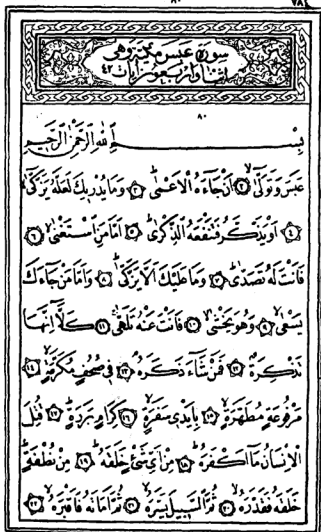 سورة عبس مكية وهى
اثنتان واربعون اٰيات ٤٢
٨٠
بِسْــــمِ اللّٰهِ الرَّحْمٰنِ الرَّحِيمِ
عَبَسَ وَتَوَلّٰىۙ ﴿١﴾ اَنْ جَٓاءَهُ الْاَعْمٰىۜ ﴿٢﴾ وَمَا يُدْر۪يكَ لَعَلَّهُ يَزَّكّٰىۙ
﴿٣﴾ اَوْ يَذَّكَّرُ فَتَنْفَعَهُ الذِّكْرٰىۜ ﴿٤﴾ اَمَّا مَنِ اسْتَغْنٰىۙ ﴿٥﴾
فَاَنْتَ لَهُ تَصَدّٰىۜ ﴿٦﴾ وَمَا عَلَيْكَ اَلَّا يَزَّكّٰىۜ ﴿٧﴾ وَاَمَّا مَنْ جَٓاءَكَ
يَسْعٰىۙ ﴿٨﴾ وَهُوَ يَخْشٰىۙ ﴿٩﴾ فَاَنْتَ عَنْهُ تَلَهّٰىۚ ﴿١٠﴾ كَلَّٓا اِنَّهَا
تَذْكِرَةٌۚ ﴿١١﴾ فَمَنْ شَٓاءَ ذَكَرَهُۢ ﴿١٢﴾ ف۪ي صُحُفٍ مُكَرَّمَةٍۙ ﴿١٣﴾
مَرْفُوعَةٍ مُطَهَّرَةٍۙ ﴿١٤﴾ بِاَيْد۪ي سَفَرَةٍۙ ﴿١٥﴾ كِرَامٍ بَرَرَةٍۜ ﴿١٦﴾ قُتِلَ
الْاِنْسَانُ مَٓا اَكْفَرَهُۜ ﴿١٧﴾ مِنْ اَيِّ شَيْءٍ خَلَقَهُۜ ﴿١٨﴾ مِنْ نُطْفَةٍۜ
خَلَقَهُ فَقَدَّرَهُۙ ﴿١٩﴾ ثُمَّ السَّب۪يلَ يَسَّرَهُۙ ﴿٢٠﴾ ثُمَّ اَمَاتَهُ فَاَقْبَرَهُۙ ﴿٢١﴾